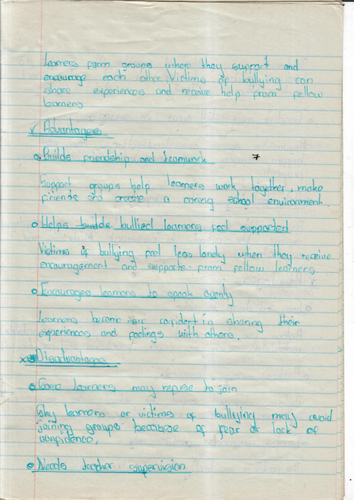 Learners form groups where they support and
encourage each other. Victims of bullying can
share experiences and receive help from fellow
learners
Advantages
Builds friendship and teamwork
Support groups help learners work together, make
friends and create a caring school environment.
Helps bullied learners feel supported
Victims of bullying feel less lonely when they receive
encouragement and supports from fellow learners
Encourages learners to speak openly
Learners become confident in sharing their
experiences and feelings with others.
Disadvantages
Some learners may refuse to join
Shy learners or victims of bullying may avoid
joining groups because of fear or lack of
confidence.
Needs teacher supervision